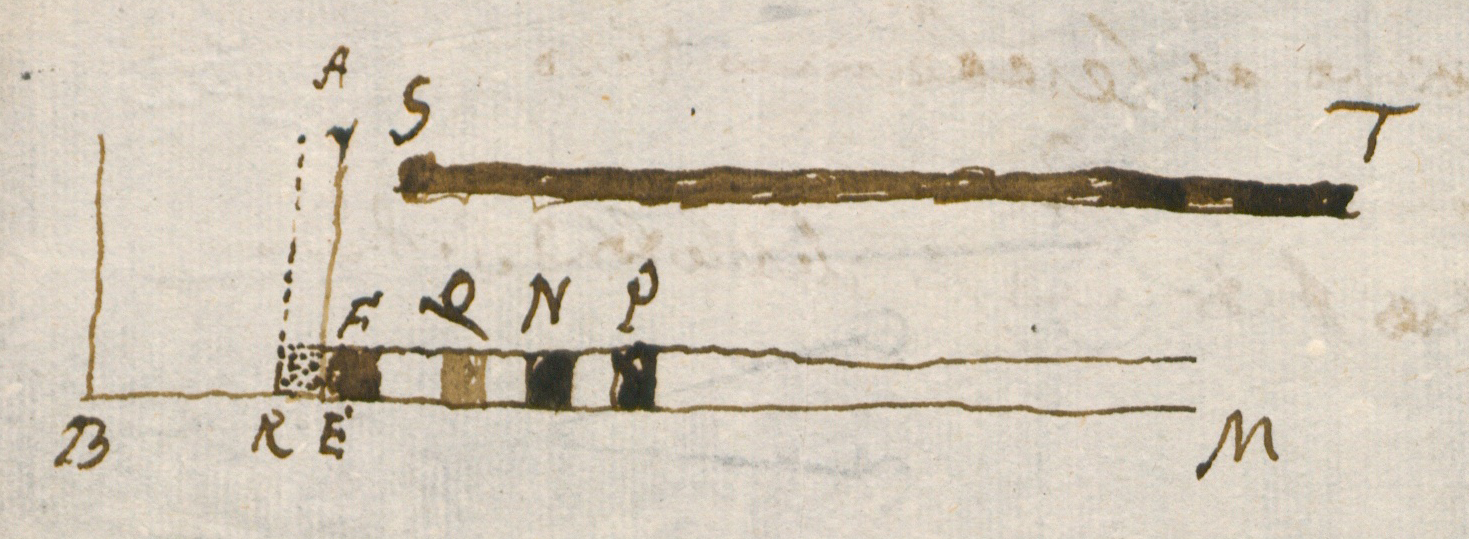 A S T
F Q N P
B R E M